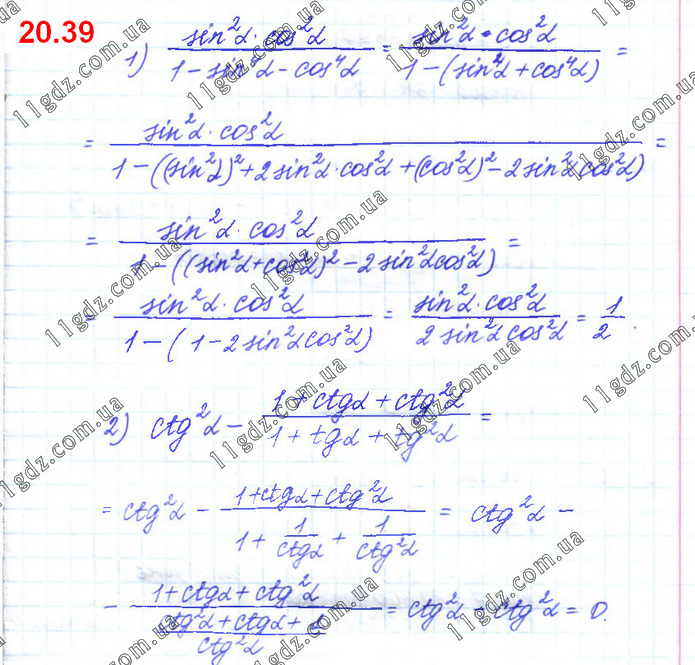 20.39
1) sin²α·cos²α / (1 - sin⁴α - cos⁴α) = sin²α·cos²α / (1 - (sin⁴α + cos⁴α)) =
= sin²α·cos²α / (1 - ((sin²α)² + 2sin²α·cos²α + (cos²α)² - 2sin²αcos²α)) =
= sin²α·cos²α / (1 - ((sin²α + cos²α)² - 2sin²αcos²α)) =
= sin²α·cos²α / (1 - (1 - 2sin²αcos²α)) = sin²α·cos²α / (2sin²αcos²α) = 1/2.
2) ctg²α - (1 + ctgα + ctg²α) / (1 + tgα + tg²α) =
= ctg²α - (1 + ctgα + ctg²α) / (1 + 1/ctgα + 1/ctg²α) = ctg²α -
- (1 + ctgα + ctg²α) / ((ctg²α + ctgα + 1) / ctg²α) = ctg²α - ctg²α = 0.
11gdz.com.ua
11gdz.com.ua
11gdz.com.ua
11gdz.com.ua
11gdz.com.ua
11gdz.com.ua
11gdz.com.ua
11gdz.com.ua
11gdz.com.ua
11gdz.com.ua
11gdz.com.ua